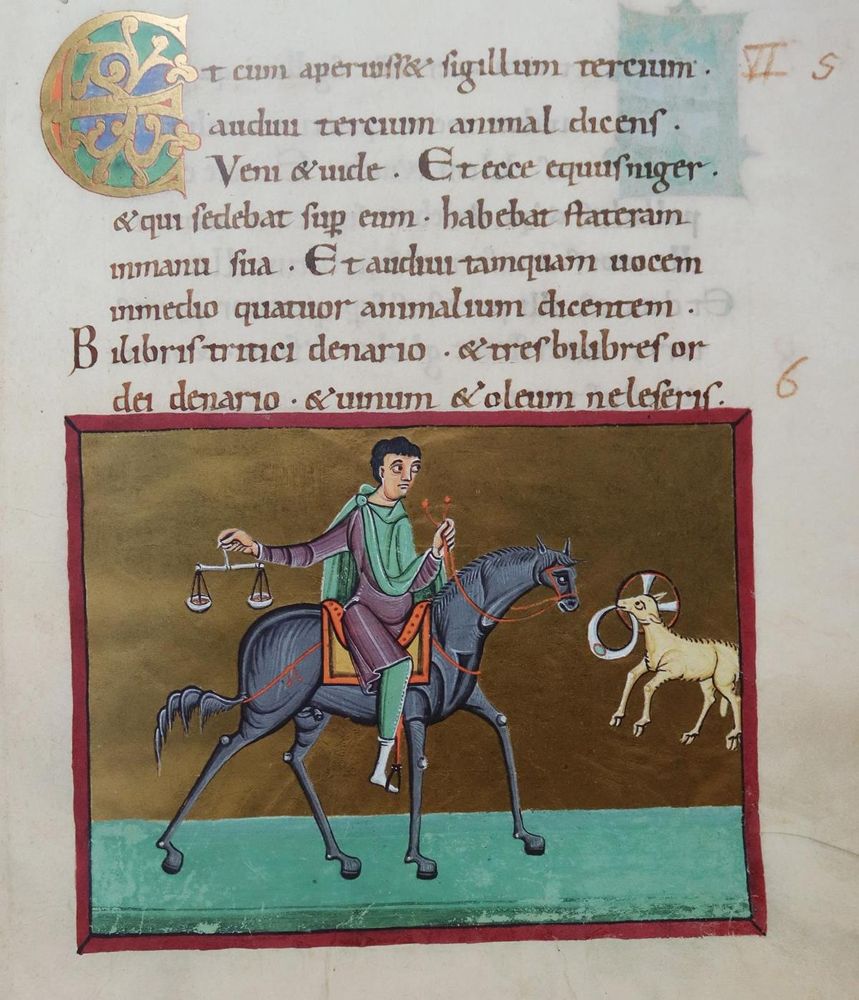 Et cum aperuiss& sigillum tercium. VI 5
audiui tercium animal dicens.
Veni &uide. Et ecce equus niger.
&qui sedebat sup eum. habebat stateram
inmanu sua. Et audiui tamquam uocem
inmedio quatuor animalium dicentem.
Bilibris tritici denario. &tres bilibres or
dei denario. &uinum &oleum neleseris. 6